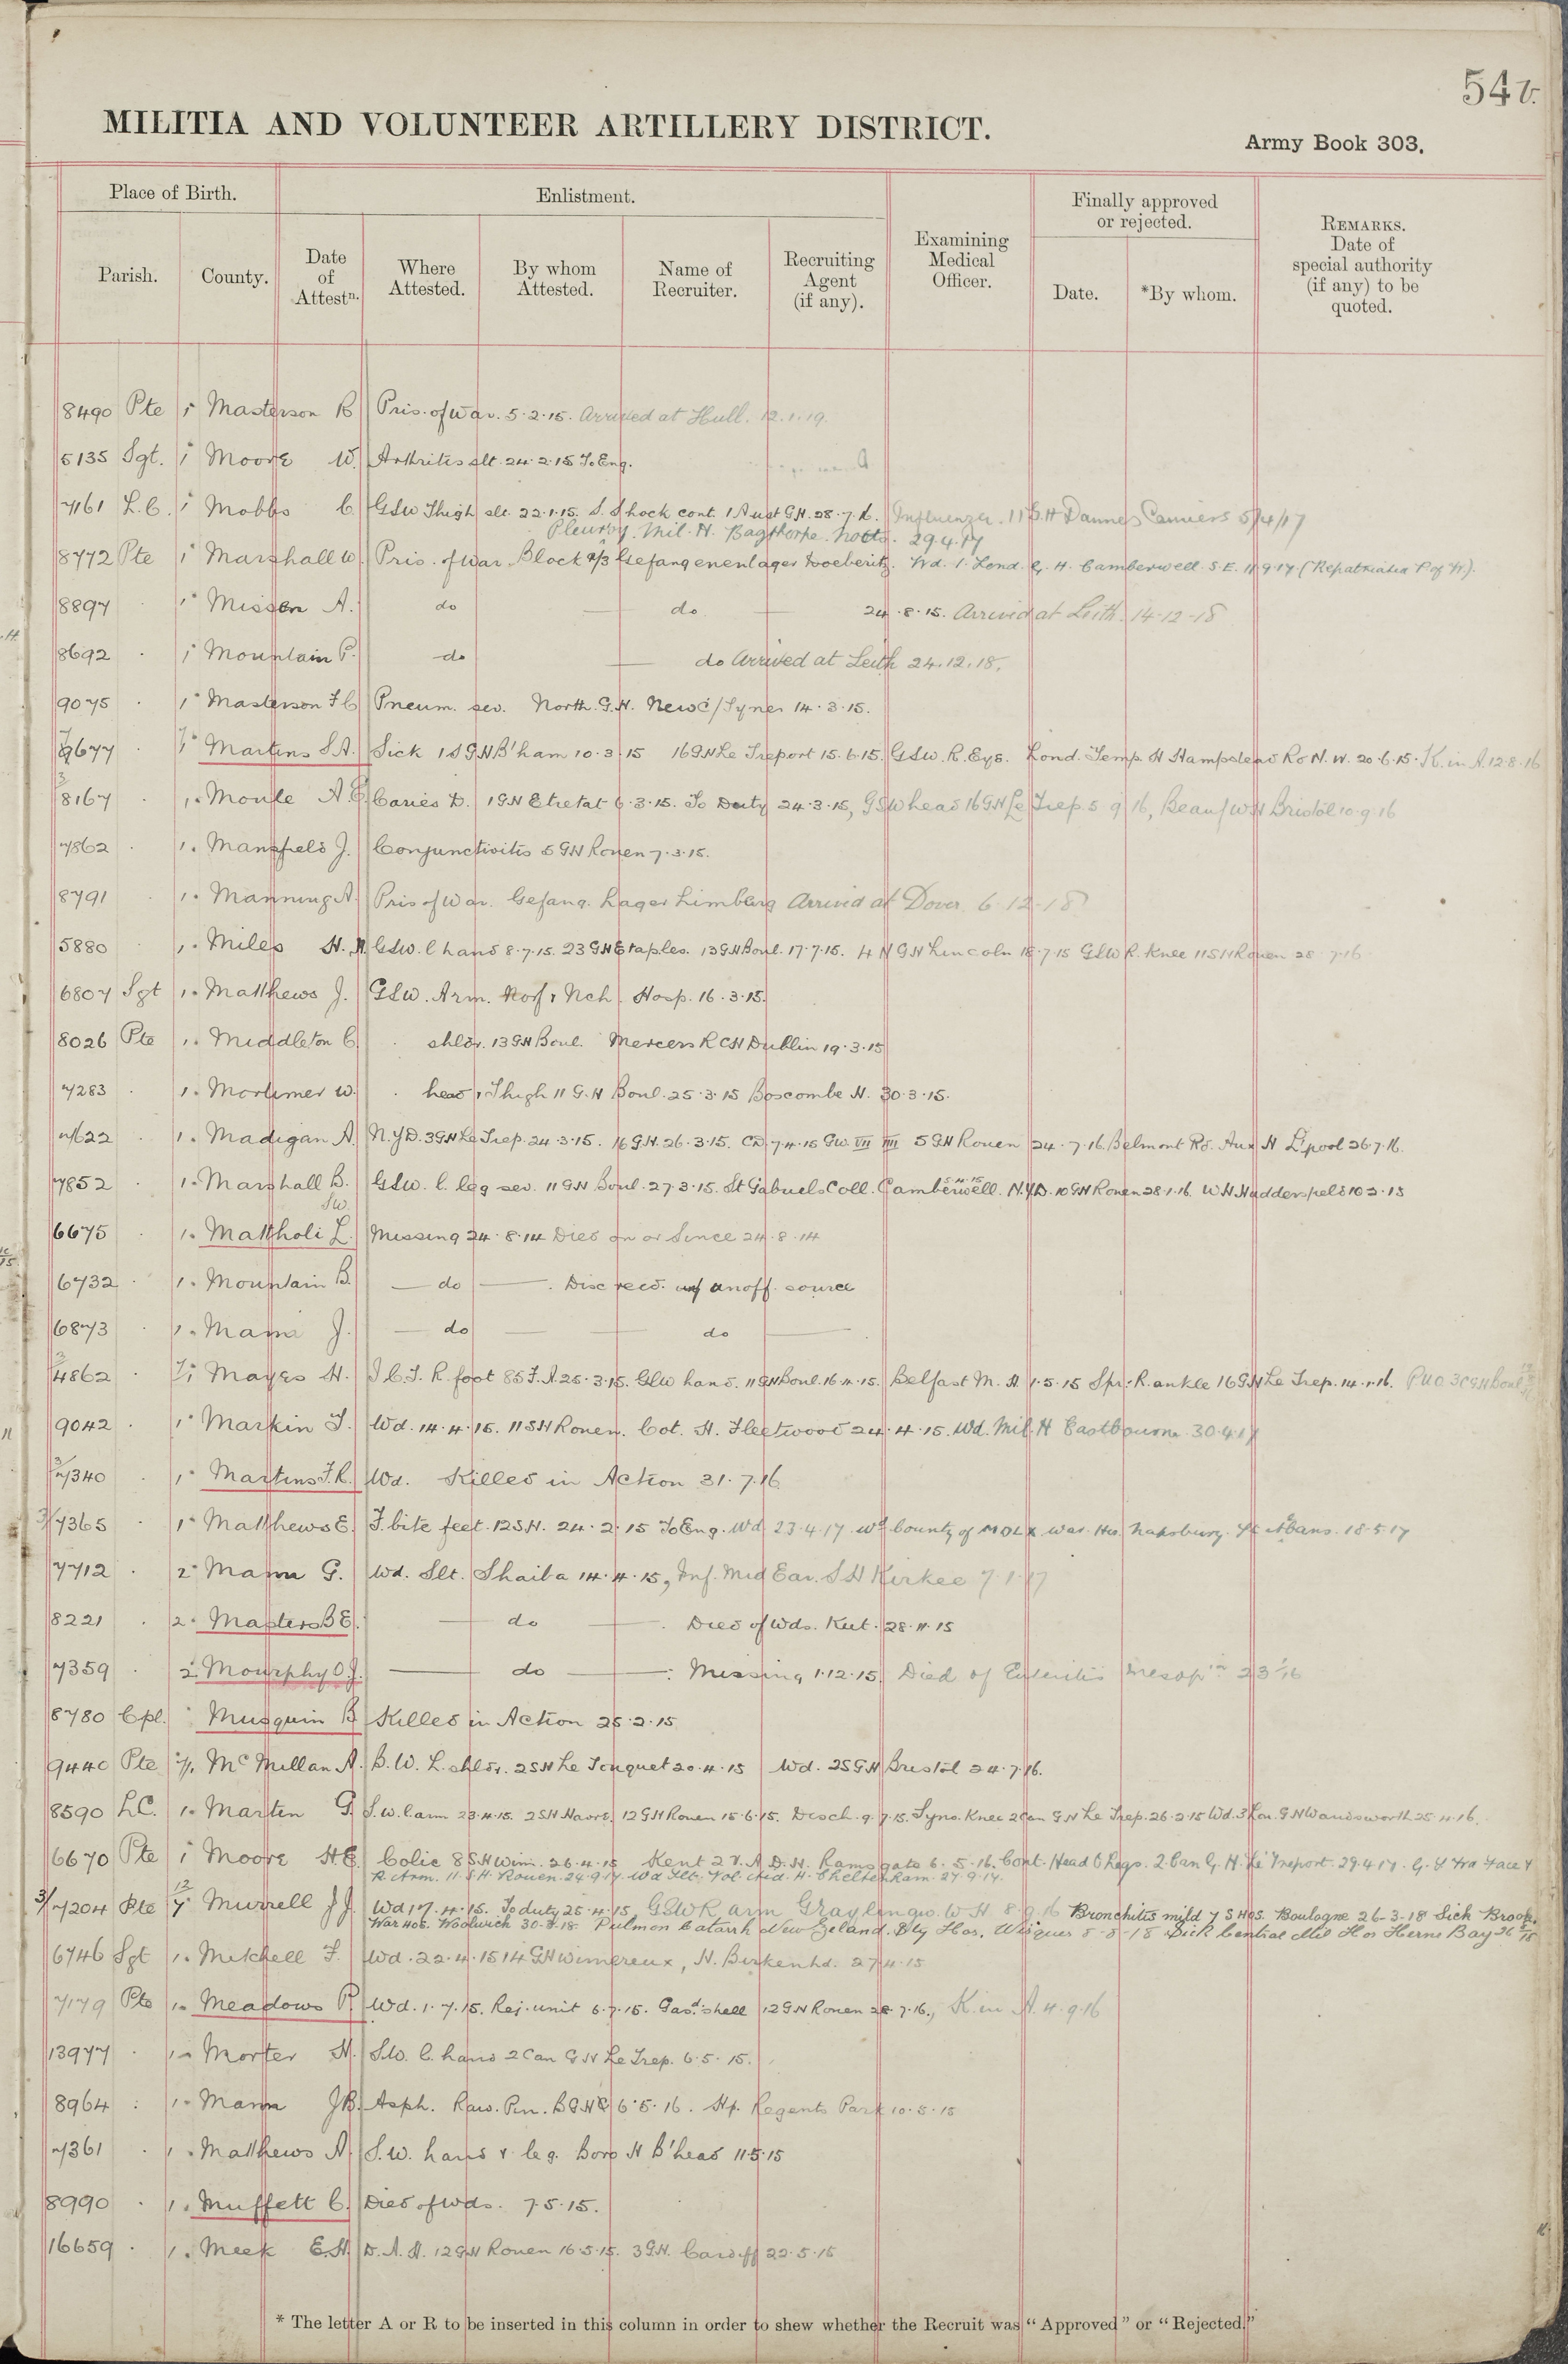 54 b.
MILITIA AND VOLUNTEER ARTILLERY DISTRICT.
Army Book 303.
Place of Birth. Enlistment. Finally approved or rejected.
Parish. County. Date of Attestn. Where Attested. By whom Attested. Name of Recruiter. Recruiting Agent (if any). Examining Medical Officer. Date. *By whom. REMARKS. Date of special authority (if any) to be quoted.
8490 Pte 1 Masterson B Pris. of War. 5.2.15. Arrived at Hull. 12.1.19.
5135 Sgt. 1 Moore W. Arthritis slt. 24.2.15 To Eng.
7161 L.C. 1 Mobbs C. GSW Thigh slt. 22.1.15. S. Shock cont. 1 Aust G.H. 28.7.16. Influenza. 11 G.H Dannes Camiers 5/4/17
Pleurisy. Mil. H. Bagthorpe. Notts. 29.4.17
8772 Pte 1 Marshall W. Pris. of War. Block 2/3 Gefangenenlager Doeberitz. Wd. 1. Lond. G. H. Camberwell. S.E. 11.9.17 (Repatriated P of W).
8897 . 1 Missen A. do do 24.8.15. Arrived at Leith. 14-12-18
8692 . 1 Mountain P. do do Arrived at Leith 24.12.18.
9075 . 1 Masterson F C Pneum. sev. North. G.H. Newc/Tyne. 14.3.15.
7677 . Martins S.A. Sick 1 S G.H B'ham 10.3.15 16 GH Le Treport 15.6.15. GSW. R. Eye. Lond. Temp. H Hampstead Rd N.W. 20.6.15. K. in A. 12.8.16
3/8167 . 1. Moule A. E. Caries D. 1 GH Etretat 6.3.15. To Duty 24.3.15, GSW head 16 GH Le Trep. 5 9 16, Beauf W H Bristol 10.9.16
7862 . 1. Mansfield J. Conjunctivitis 5 GH Rouen 7.3.15.
8791 1. Manning A. Pris of War. Gefang. Lager Limburg Arrived at Dover. 6.12.18
5880 . 1. Miles H. H. GSW. l hand 8.7.15. 23 GH Etaples. 13 GH Boul. 17.7.15. 4 N GH Lincoln 18.7.15 GSW R. Knee 11 SH Rouen 28.7.16
6807 Sgt 1. Matthews J. GSW. Arm. Norf & Nch Hosp. 16.3.15.
8026 Pte 1. Middleton C. . shldr. 13 GH Boul. Mercers R C H Dublin 19.3.15
7283 . 1. Mortimer W. . head & Thigh 11 G.H Boul. 25.3.15 Boscombe H. 30.3.15.
7622 . 1. Madigan A. N.Y.D. 3 GH Le Trep. 24.3.15. 16 GH. 26.3.15. CD. 7.4.15 5 GH Rouen 24.7.16. Belmont Rd. Aux H L'pool 26.7.16.
7852 . 1. Marshall B. GSW. l. leg sev. 11 GH Boul. 27.3.15. St Gabriels Coll. Camberwell. N.Y.D. 10 GH Rouen 28.1.16. W H Hudderspeld 10.2.15
6675 . 1. Mattholi L. Missing 24.8.14 Died on or Since 24.8.14
6732 . 1. Mountain B. do . Disc recd. unoff. source
6873 . 1. Mann J. do do
3/4862 . Mayes H. I.C.T. R. foot 85 F.A. 25.3.15. GSW hand. 11 GH Boul. 16.4.15. Belfast M. H. 1.5.15 Spr. R. ankle 16 GH Le Trep. 14.1.16.
9042 . 1 Markin T. Wd. 14.4.15. 11 SH Rouen. Cot. H. Fleetwood 24.4.15. Wd. Mil. H Eastbourne. 30.4.17
3/7340 . 1 Martins F.R. Wd. Killed in Action 31.7.16
3/7365 . 1 Matthews E. F. bite feet. 12 S.H. 24.2.15 To Eng. Wd 23.4.17. Wd County of MDLX. War. Hos. Napsbury. St Albans. 18.5.17
7712 . 2 Mann G. Wd. Slt. Shaiba 14.4.15, Inf. Mid Ear. S H Kirkee 7.1.17
8221 . 2. Masters B E. do . Died of Wds. Kut. 28.11.15
7359 . 2. Mourphy O.J. do . Missing 1.12.15 Died of Enteritis Mesop
8780 Cpl. Musquin B Killed in Action 25.2.15
9440 Pte McMillan A. B.W. L. shldr. 2 SH Le Touquet 20.4.15 Wd. 2 S GH Bristol 24.7.16.
8590 L.C. 1. Martin G. S.W. l. arm 23.4.15. 2 SH Havre. 12 GH Rouen 15.6.15. Disch. 9.7.15. Syno. Knee 2 Can GH Le Trep. 26.2.15 Wd. 3 Lon. G H Wandsworth 25.11.16.
6670 Pte 1 Moore H.E. Colic 8 SH Wim. 26.4.15 Kent 2 V.A.D.H. Ramsgate 6.5.16. Cont. Head & Legs. 2 Can G. H. Le Treport. 29.4.17. Face &
R. Arm. 11 S H. Rouen. 24.9.17. Wd Slt. Vol. Aid. H. Cheltenham. 27.9.17.
3/7204 Pte Murrell J J. Wd 17.4.15. To duty 25.4.15, GSW R arm Graylingwo. W H 8.9.16 Bronchitis mild 7 S Hos. Boulogne 26-3-18 Sick Brook.
War Hos. Woolwich 30.3.18. Pulmon Catarrh New Zeland. Sty Hos. Wisques 5-8-18 Sick Central Mil Hos Herne Bay
6746 Sgt 1. Mitchell F. Wd. 22.4.15 14 GH Wimereux, H. Birkenhd. 27.4.15
7179 Pte 1. Meadows P. Wd. 1.7.15. Rej. unit 6.7.15. Gasd. shell 12 GH Rouen 28.7.16., K. in A. 4.9.16
13977 . 1. Morter H. S.W. l. hand 2 Can GH Le Trep. 6.5.15.
8964 : 1. Mann J B. Asph. 6.5.16. Hp. Regents Park 10.5.15
7361 . 1. Matthews A. S.W. hand & leg. Boro H B'head 11.5.15
8990 . 1. Muffett C. Died of Wds. 7.5.15.
16659 . 1. Meek E.H. D.A.H. 12 GH Rouen 16.5.15. 3 GH. Cardiff 22.5.15
* The letter A or R to be inserted in this column in order to shew whether the Recruit was "Approved" or "Rejected."